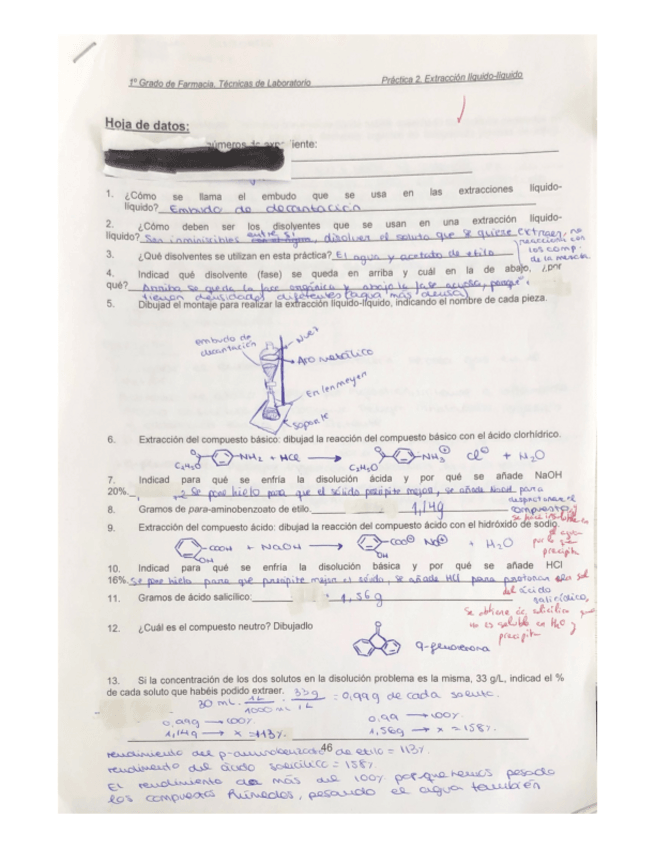 1º Grado de Farmacia. Técnicas de Laboratorio
Práctica 2. Extracción líquido-líquido
Hoja de datos:
números de expediente:
1. ¿Cómo se llama el embudo que se usa en las extracciones líquido-
líquido? Embudo de decantación
2. ¿Cómo deben ser los disolventes que se usan en una extracción líquido-
líquido? Son inmiscibles entre sí, disolver el soluto que se quiere extraer, no
reaccionar con
los comp.
de la mezcla
3. ¿Qué disolventes se utilizan en esta práctica? El agua y acetato de etilo
4. Indicad qué disolvente (fase) se queda en arriba y cuál en la de abajo, ¿por
qué? Arriba se queda la fase orgánica y abajo la fase acuosa, porque
tienen densidades diferentes (agua más densa)
5. Dibujad el montaje para realizar la extracción líquido-líquido, indicando el nombre de cada pieza.
embudo de
decantación
Nuez
Aro metálico
Enlenmeyen
soporte
6. Extracción del compuesto básico: dibujad la reacción del compuesto básico con el ácido clorhídrico.
C₂H₅O NH₂ + HCl → C₂H₅O NH₃⊕ Cl⊖ + H₂O
7. Indicad para qué se enfría la disolución ácida y por qué se añade NaOH
20%. Se pone hielo para que el sólido precipite mejor, se añade NaOH para
desprotonar el
compuesto y
se hace insoluble en
el agua
por lo que
precipita
8. Gramos de para-aminobenzoato de etilo. 1,14g
9. Extracción del compuesto ácido: dibujad la reacción del compuesto ácido con el hidróxido de sodio.
COOH OH + NaOH → COO⊖ Na⊕ OH + H₂O
10. Indicad para qué se enfría la disolución básica y por qué se añade HCl
16% Se pone hielo para que precipite mejor el sólido, se añade HCl para protonar la sal
del ácido
salicídico,
Se obtiene ác. salicílico que
no es soluble en H₂O y
precipita
11. Gramos de ácido salicílico: 1,56g
12. ¿Cuál es el compuesto neutro? Dibujadlo
O
9-fluorenona
13. Si la concentración de los dos solutos en la disolución problema es la misma, 33 g/L, indicad el %
de cada soluto que habéis podido extraer.
30 mL · 1L/1000 mL · 33g/1L = 0,99g de cada soluto.
0,99g → 100%
1,14g → x = 113%
0,99 → 100%
1,56g → x = 158%
46
rendimiento del p-aminobenzoato de etilo = 113%
rendimiento del ácido salicílico = 158%
El rendimiento da más del 100% porque hemos pesado
los compuestos húmedos, pesando el agua también